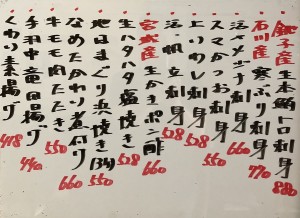 銚子産 生本鮪トロ刺身 880
石川産 寒ぶり刺身 770
活〆メジナ刺身 660
スマかつお刺身 550
刺身
活帆立刺身
生かきポン酢 660
生ハタハタ塩焼き 528
地はまぐり浜焼き 550
なめたかれい煮付け 660
牛モモ肉たたき 550
手羽中竜田揚げ 440
くわい素揚げ 418